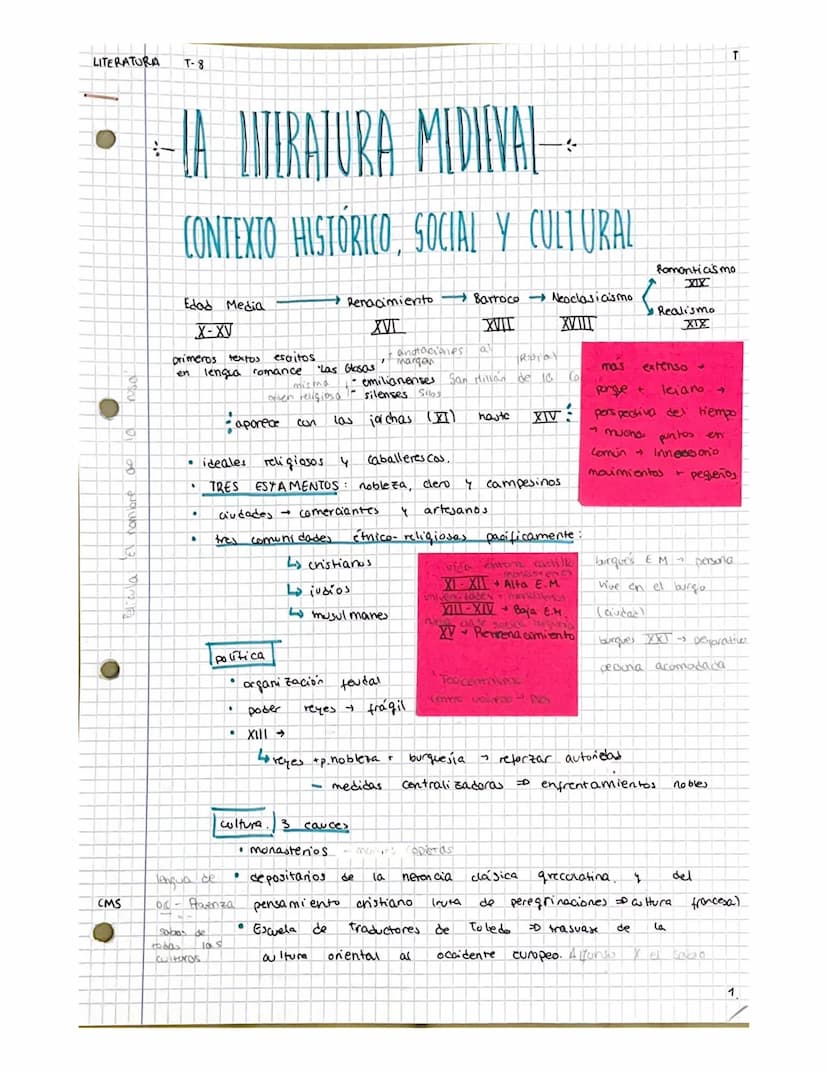 LITERATURA T-8
T
LA LITERATURA MEDIEVAL
CONTEXTO HISTÓRICO, SOCIAL Y CULTURAL
Edad Media → Renacimiento → Barroco → Neoclasicismo
Romanticismo
XIX
Realismo
XIX
X-XV XVI XVII XVIII
primeros textos escritos
en lengua romance "Las Glosas"
anotaciones al
margen
(Rioja)
misma
orden religiosa
- emilianenses San Millán de la Co
- silenses Silos
aparece con las jarchas (XI) hasta XIV
más extenso →
porqe + lejano →
perspectiva del tiempo
→ muchos puntos en
común → innecesario
movimientos + pequeños
Película "El nombre de la rosa"
• ideales religiosos y caballerescos.
• TRES ESTAMENTOS: nobleza, clero y campesinos
• ciudades → comerciantes y artesanos
• tres comunidades étnico-religiosas pacíficamente:
↳ cristianos
↳ judíos
↳ musulmanes
XI-XII → Alta E.M.
XIII-XIV → Baja E.M.
XV → Prerrenacimiento
Teocentrismo
centro universo → Dios
burgués E M → persona
vive en el burgo
(ciudad)
burgues XXI → Desporativo
persona acomodada
política
• organización feudal
• poder reyes → frágil
• XIII →
↳ reyes + p.nobleza + burguesía → reforzar autoridad
- medidas centralizadoras ⇒ enfrentamientos nobles
cultura. 3 cauces
• monasterios - monjes copistas
• depositarios de la herencia clásica grecolatina, y del
pensamiento cristiano (ruta de peregrinaciones ⇒ cultura francesa)
• Escuela de Traductores de Toledo ⇒ trasvase de la
cultura oriental al occidente europeo. Alfonso X el Sabio
lengua de
oc - Provenza
sabios de
todas las
culturas
CMS
1.